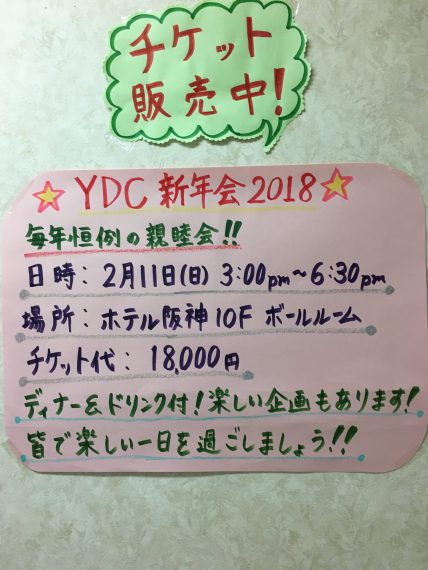 チケット
販売中!
★YDC 新年会2018★
毎年恒例の親睦会!!
日時: 2月11日(日) 3:00pm~6:30pm
場所: ホテル阪神10F ボールルーム
チケット代: 18,000円
ディナー&ドリンク付!楽しい企画もあります!
皆で楽しい一日を過ごしましょう!!